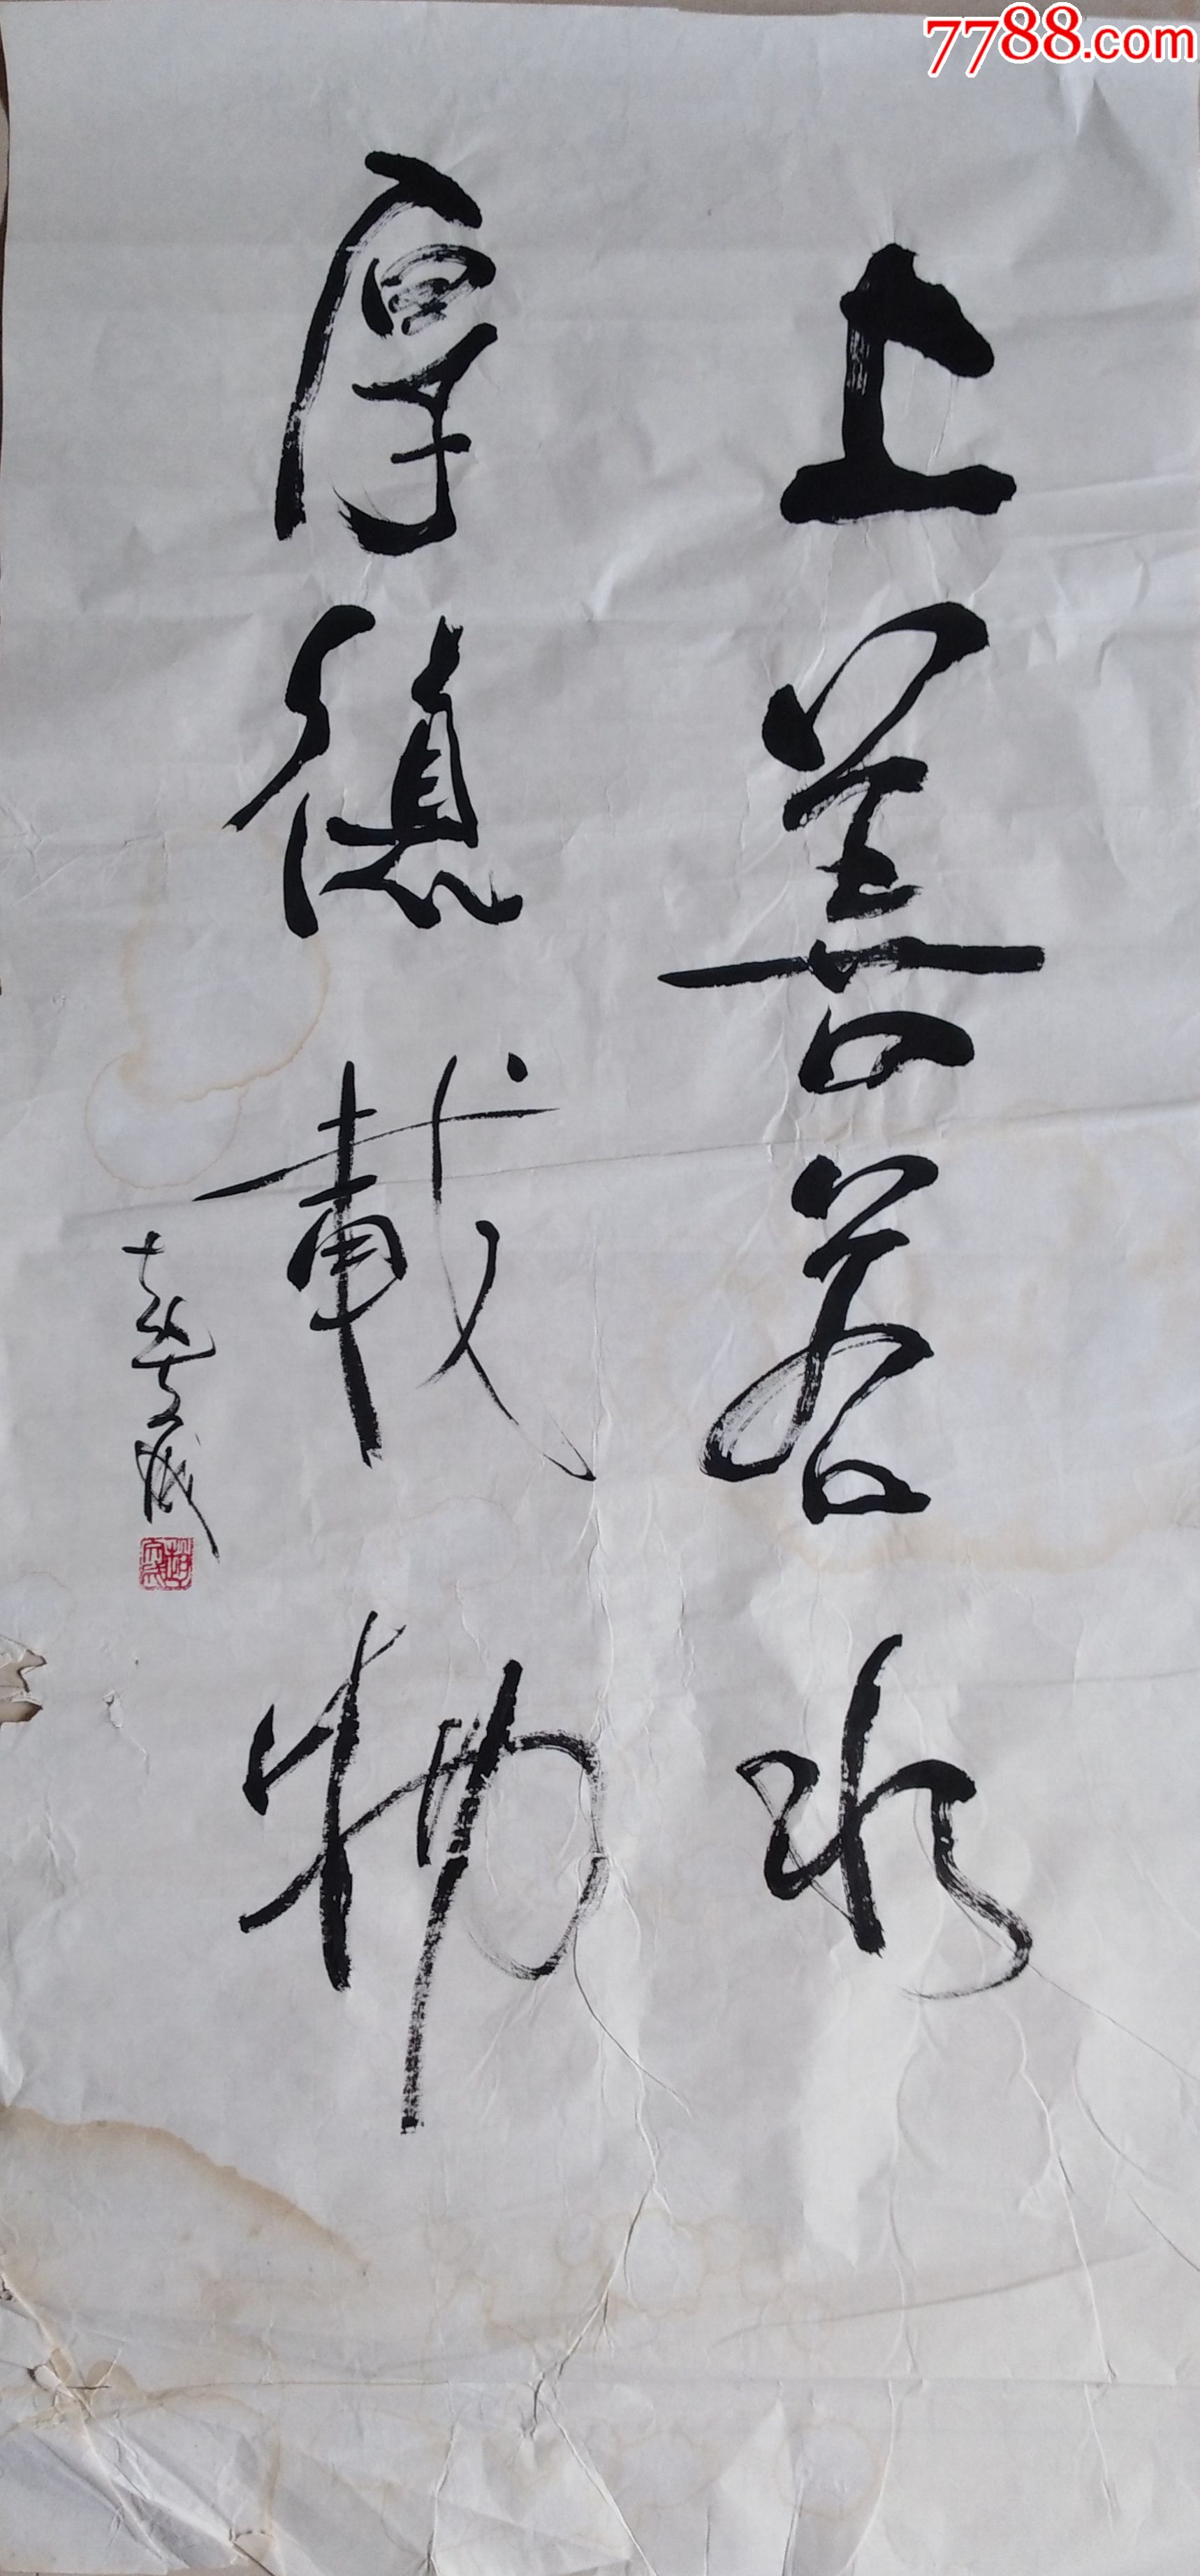 7788.com
上善若水
厚德载物